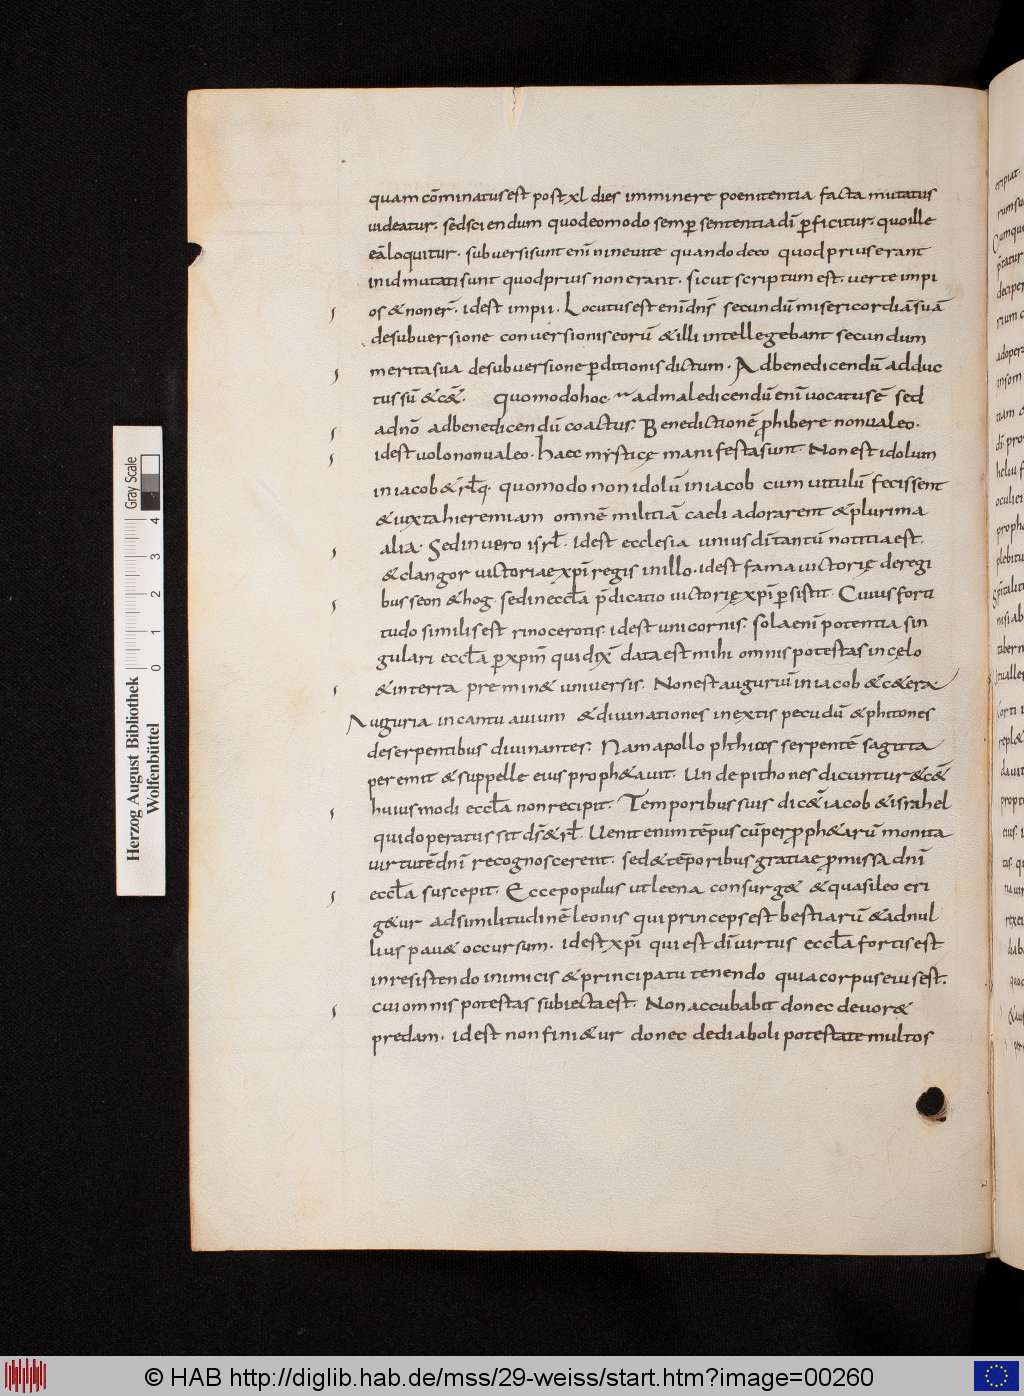 quam cōminatus est post xl dies imminere poenitentia facta mutatus
uideatur. sed sciendum quod eo modo semꝑ sententia dī ꝑficitur. quo ille
eā loquitur. subuersi sunt enī nineuite quando deeo quod prius erant
in id mutati sunt quod prius non erant. sicut scriptum est. uerte impi
os & non er̄. idest impii. Locutus est enī dn̄s secundū misericordiā suā
de subuersione conuersionis eorū & illi intellegebant secundum
merita sua de subuersione ꝑditionis dictum. Ad benedicendū adduc
tus sū & c&̄. Quomodo hoc ad maledicendū enī uocatus ē sed
ad nō ad benedicendū coactus. Benedictionē ꝓhibere non ualeo.
idest uolo non ualeo. Haec mysticę manifesta sunt. Non est idolum
in iacob & isrl̄ q. quomodo non idolū in iacob cum uitulū fecissent
& iuxta hieremiam omnē militiā caeli adorarent & plurima
alia. Sed in uero isrl̄. idest ecclesia unius dī tantū notitia est.
& clangor uictoriae xp̄i regis in illo. idest fama uictorię de regi
bus seon & hog. sed in eccl̄a p̄dicatio uictorię xp̄i ꝑsistit. Cuius forti
tudo similis est rinocerotis. idest unicornis. sola enī potentia sin
gulari eccl̄a ꝑ xp̄m̄ qui dix̄ data est mihi omnis potestas in cęlo
& in terra premin& uniuersis. Non est auguriū in iacob & c&era
Auguria in cantu auium & diuinationes in extis pecudū & phitones
de serpentibus diuinantes. Nam apollo phthios serpentē sagitta
peremit & suppelle eius proph&auit. Unde pithones dicuntur & c&̄
huiusmodi eccl̄a non recipit. Temporibus suis dic&̄ iacob & israhel
quid operatus sit ds̄ & isrl̄. Uenit enim tēpus cū per ꝓph&arū monita
uirtutē dnī recognoscerent. sed & tēporibus gratiae ꝓmissa dnī
eccl̄a suscepit. Ecce populus ut leena consurg& & quasi leo eri
g&ur ad similitudinē leonis qui princeps est bestiarū & ad nul
lius pau& occursum. idest xp̄i qui est dī uirtus eccl̄a fortis est
in resistendo inimicis & principatu tenendo quia corpus eius est.
cui omnis potestas subiecta est. Non accubabit donec deuor&
predam. idest non fini&ur donec de diaboli potestate multos
Herzog August Bibliothek
Wolfenbüttel
0 1 2 3 4
Gray Scale
© HAB http://diglib.hab.de/mss/29-weiss/start.htm?image=00260